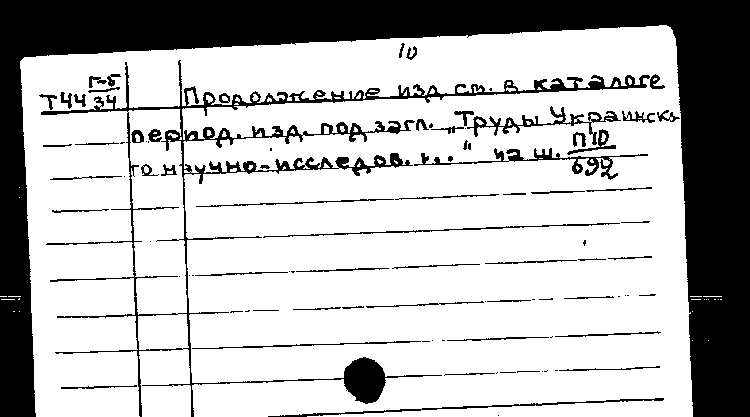 10
Т44 Г-5/34 Продолжение изд см. в каталоге
период. изд. под загл. „Труды Украинско
го научно-исследов. и..." на ш. П10/692